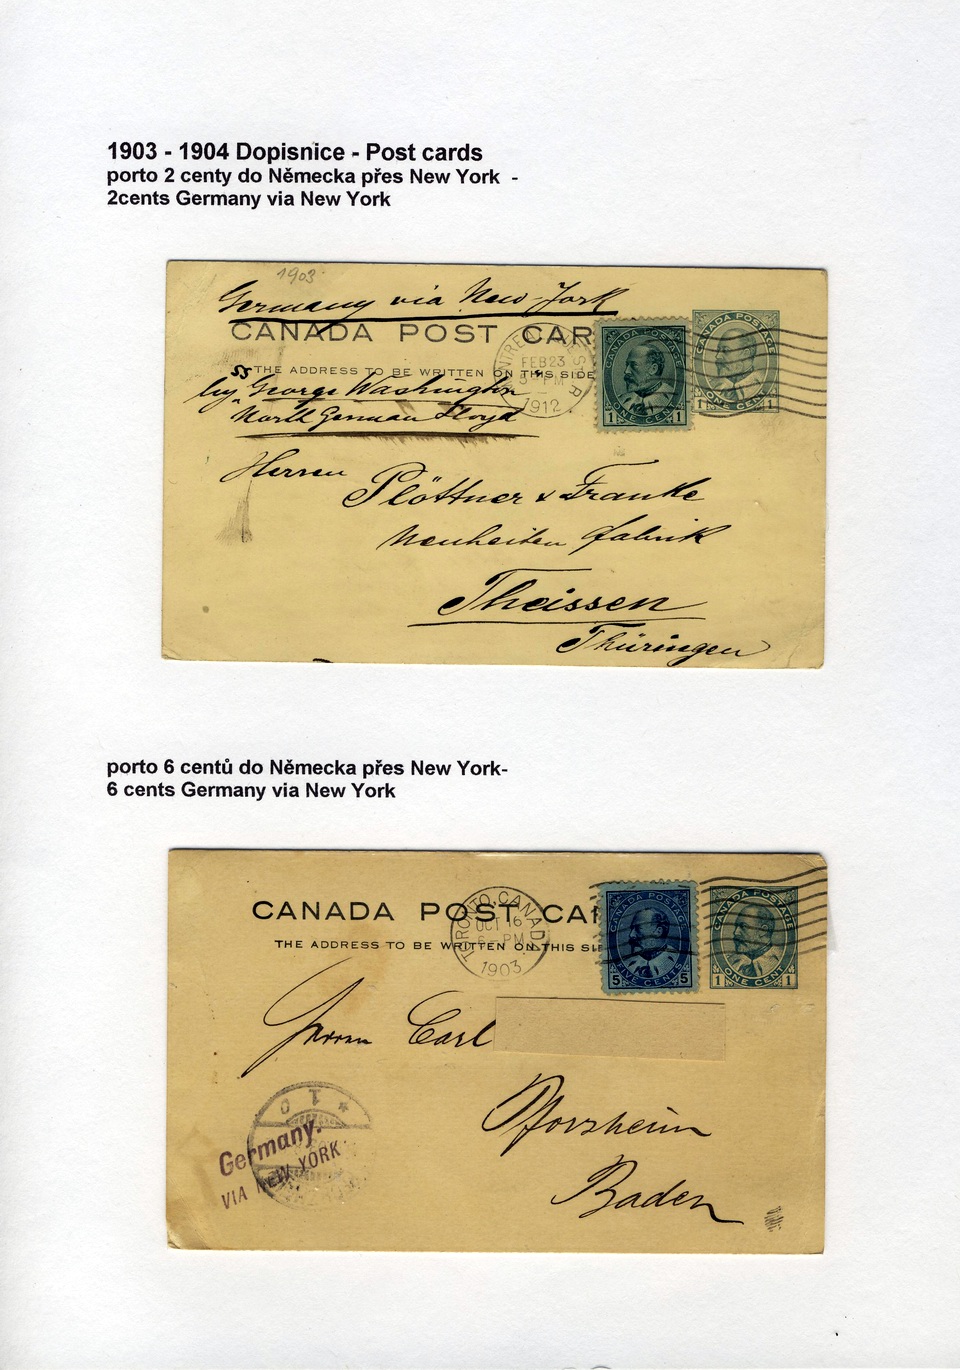 1903 - 1904 Dopisnice - Post cards
porto 2 centy do Německa přes New York -
2cents Germany via New York
1903
Germany via New-York
CANADA POST CAR
THE ADDRESS TO BE WRITTEN ON THIS SIDE
SS
by George Washington
"North German Lloyd
MONTREAL
FEB 23
PM
1912
CANADA POSTAGE
1 ONE CENT 1
CANADA POSTAGE
1 ONE CENT 1
Herren
Plöttner & Franke
Neuheiten fabrik
Theissen
Thüringen
porto 6 centů do Německa přes New York-
6 cents Germany via New York
CANADA POST CAR
THE ADDRESS TO BE WRITTEN ON THIS SIDE
TORONTO, CANADA
OCT 16
6 - PM
1903
CANADA POSTAGE
5 FIVE CENTS 5
CANADA POSTAGE
1 ONE CENT 1
Herrn Carl
Pforzheim
Baden
Germany.
VIA NEW YORK